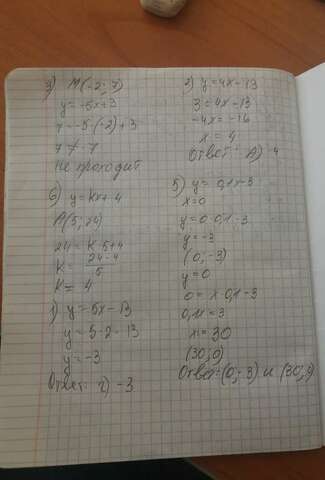 3) M(-2; 7)
y = -5x+3
7 = -5·(-2)+3
7 ≠ -7
не проходит
6) y = kx+4
A(5; 24)
24 = k·5+4
k = 24-4
5
k = 4
1) y = 5x - 13
y = 5·2 - 13
y = -3
Ответ: г) -3
2) y = 4x - 13
3 = 4x - 13
-4x = -16
x = 4
Ответ: А) 4
5) y = 0,1x - 3
x = 0
y = 0·0,1 - 3
y = -3
(0; -3)
y = 0
0 = x·0,1 - 3
0,1x = 3
x = 30
(30; 0)
Ответ: (0; -3) и (30; 0)